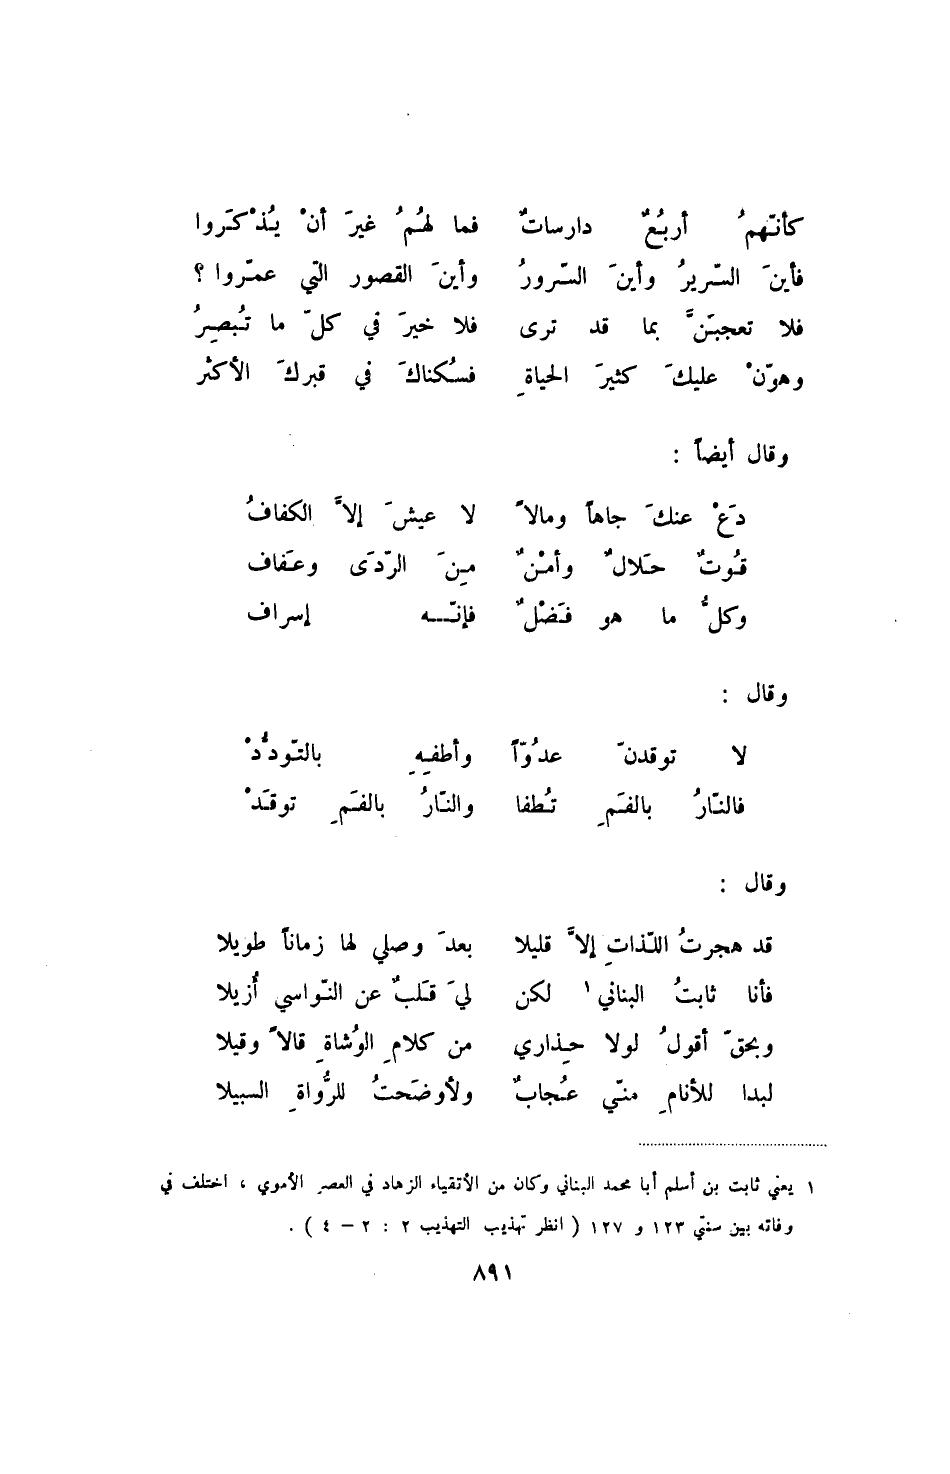 كأنّهمُ أربُعٌ دارساتٌ فما لهُمُ غيرَ أنْ يُذْكَروا
فأينَ السّريرُ وأينَ السّرورُ وأينَ القصور التي عمّروا ؟
فلا تعجبَنَّ بما قد ترى فلا خيرَ في كلّ ما تُبصِرُ
وهوّنْ عليكَ كثيرَ الحياةِ فسُكناكَ في قبركَ الأكثر
وقال أيضاً :
دَعْ عنكَ جاهاً ومالاً لا عيشَ إلاَّ الكفافُ
قُوتٌ حَلالٌ وأمْنٌ مِنَ الرّدَى وعَفاف
وكلُّ ما هو فَضْلٌ فإنّـــه إسراف
وقال :
لا توقدنّ عدُوّاً وأطفِهِ بالتّودُّدْ
فالنّارُ بالفَمِ تُطفا والنّارُ بالفَمِ توقَدْ
وقال :
قد هجرتُ اللّذاتِ إلاَّ قليلا بعدَ وصلي لها زماناً طويلا
فأنا ثابتُ البناني ١ لكن ليَ قَلبٌ عن النّواسي أُزيلا
وبحقّ أقولُ لولا حِذاري من كلامِ الوُشاةِ قالاً وقيلا
لبدا للأنامِ منّي عُجابٌ ولأوضَحتُ للرُّواةِ السبيلا
١ يعني ثابت بن أسلم أبا محمد البناني وكان من الأتقياء الزهاد في العصر الأموي ، اختلف في
وفاته بين سنتي ١٢٣ و ١٢٧ ( انظر تهذيب التهذيب ٢ : ٢ – ٤ ) .
٨٩١